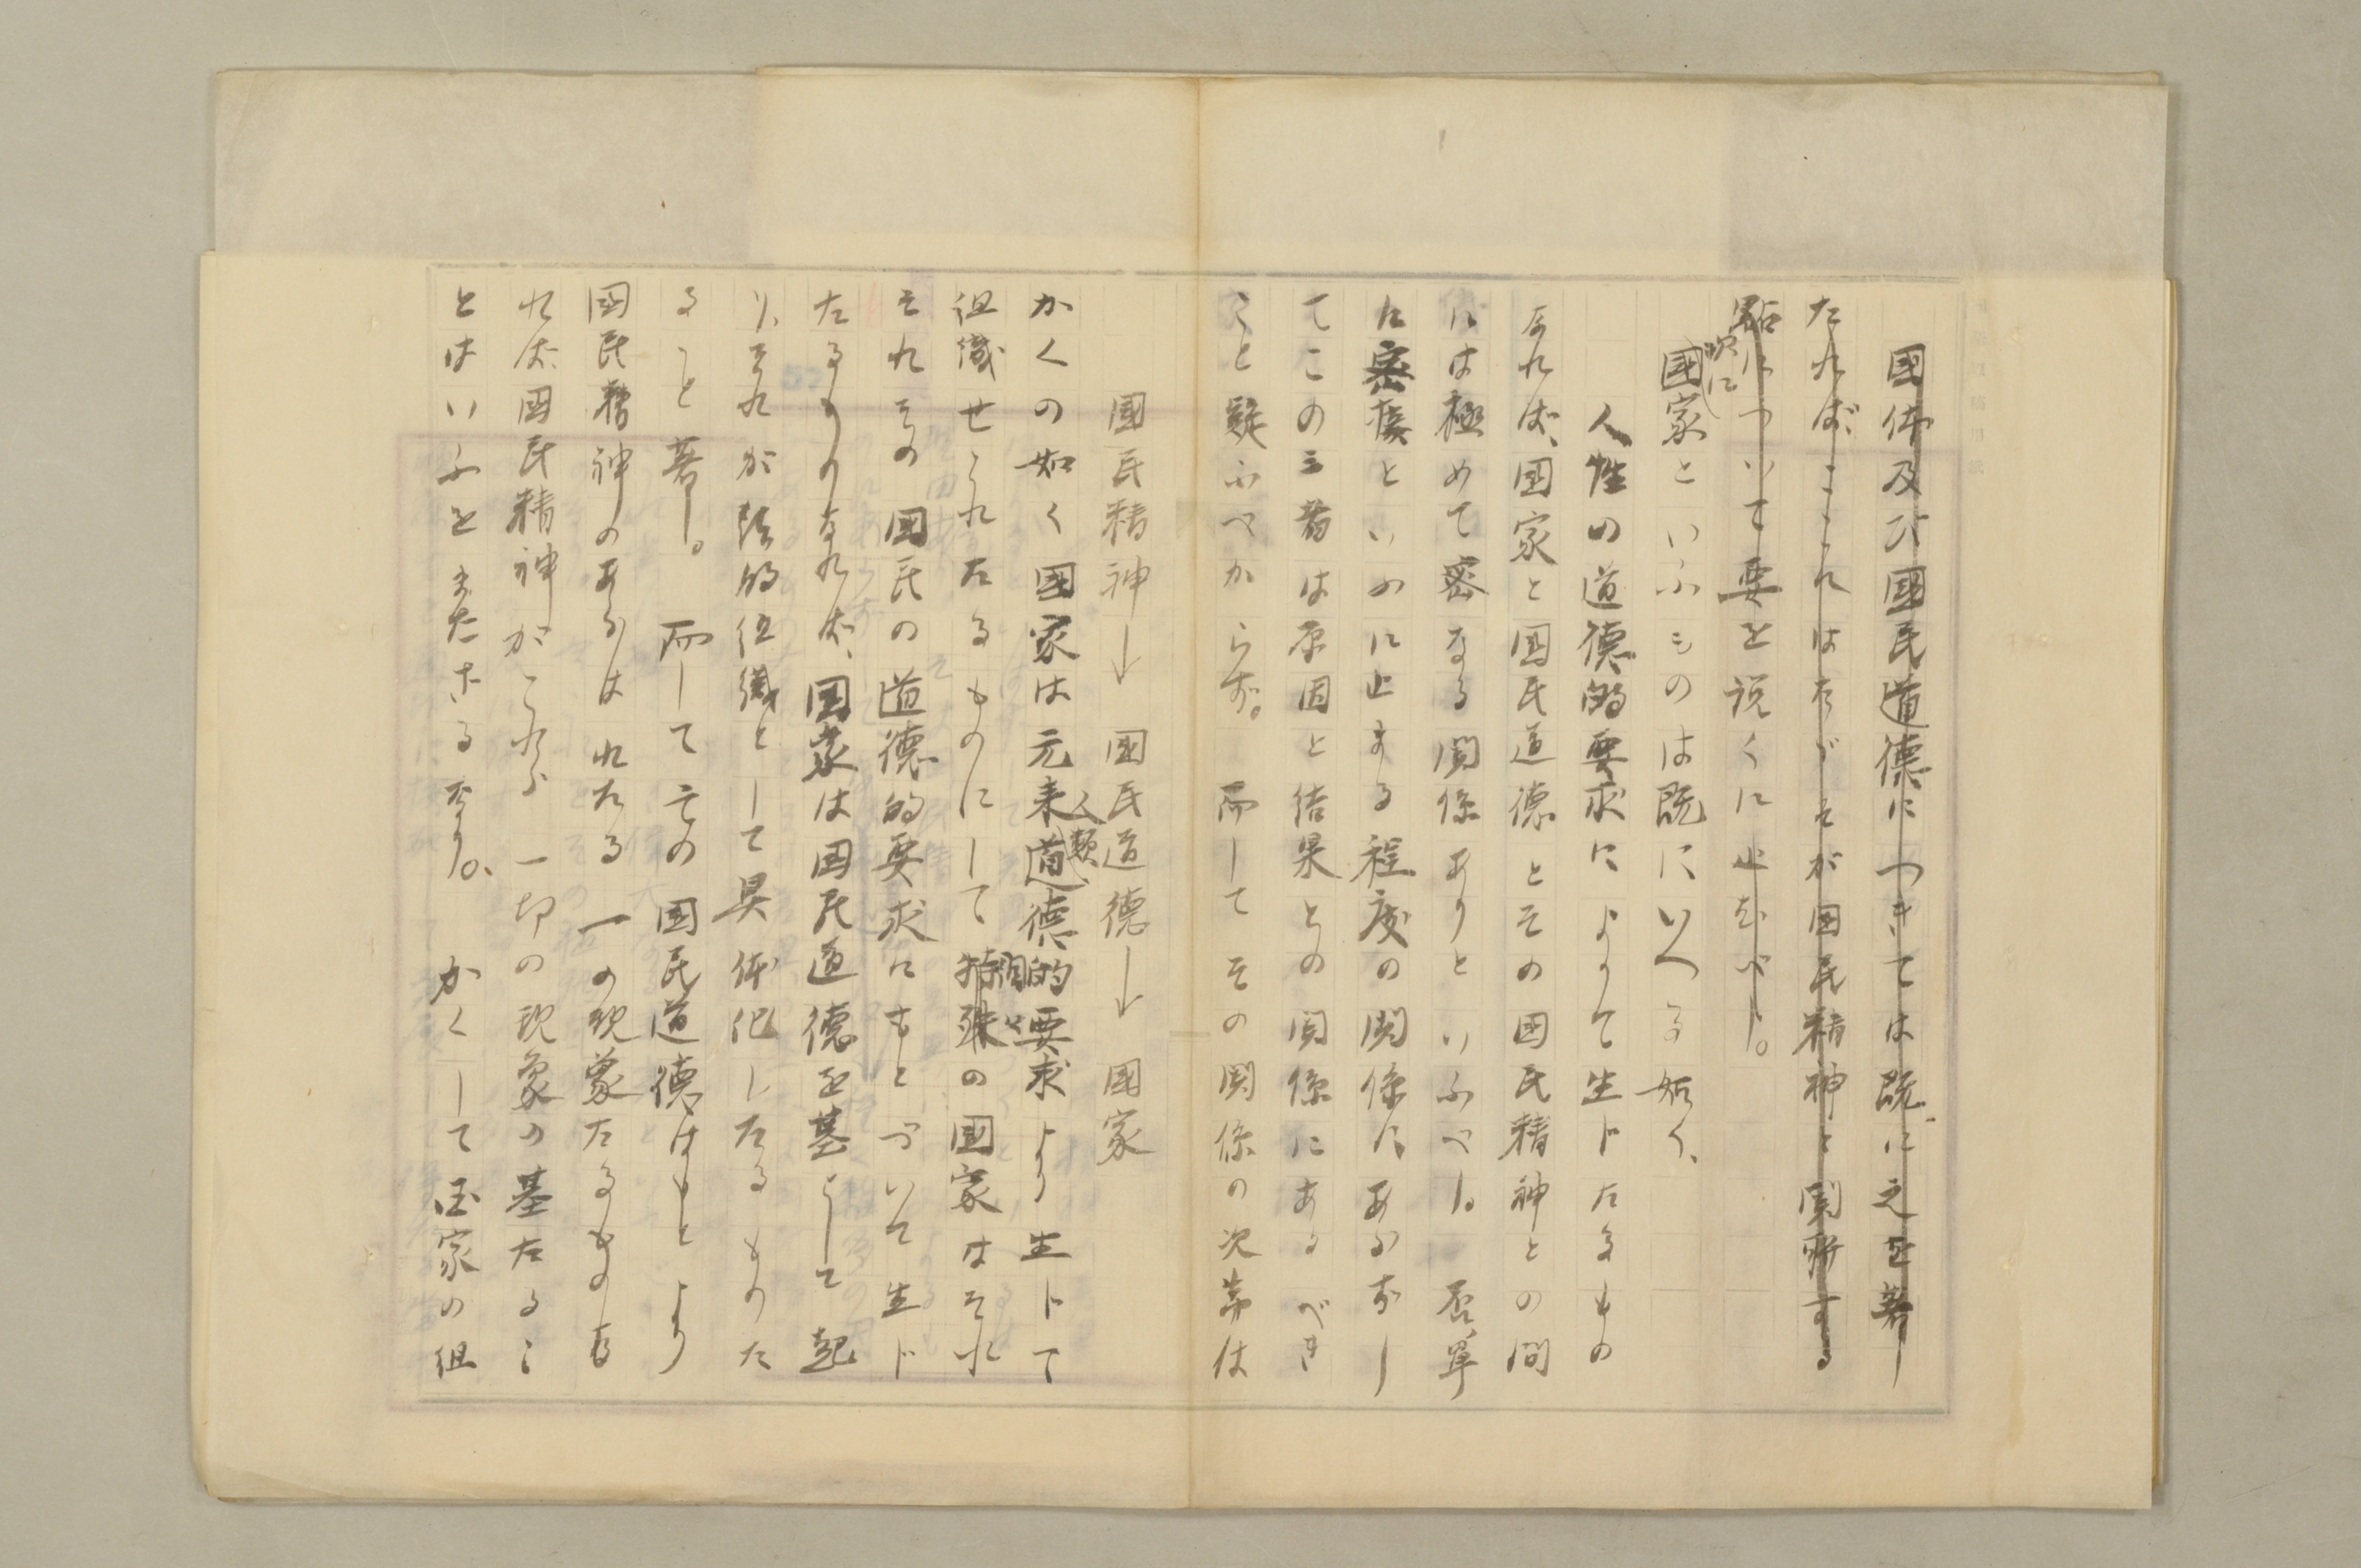 國体及び國民道徳につきては既に之を著し
たればこゝにはたゞそが国民精神と関聯する
點について要を説くに止むべし。
次に
國家といふものは既にいへる如く、
人性の道徳的要求によりて生じたるもの
なれば、国家と国民道徳とその国民精神との間
には極めて密なる関係ありといふべし。否、単
に密接といふに止まる程度の関係にあらずし
てこの三者は原因と結果との関係にあるべき
こと疑ふべからず。而してその関係の次第は
國民精神→國民道徳→國家
かくの如く国家は元来道徳的要求より生じて
人類
組織せられたるものにして特殊の国家はそれ
それその国民の道徳的要求にもとづいて生じ
たるものなれば、国家は国民道徳を基として起
り、それが法的組織として具体化したるものた
ること著し。而してその国民道徳はもとより
国民精神のあらはれたる一の現象たるものな
れば国民精神がこれら一切の現象の基たるこ
とはいふをまたざるなり。かくして国家の組